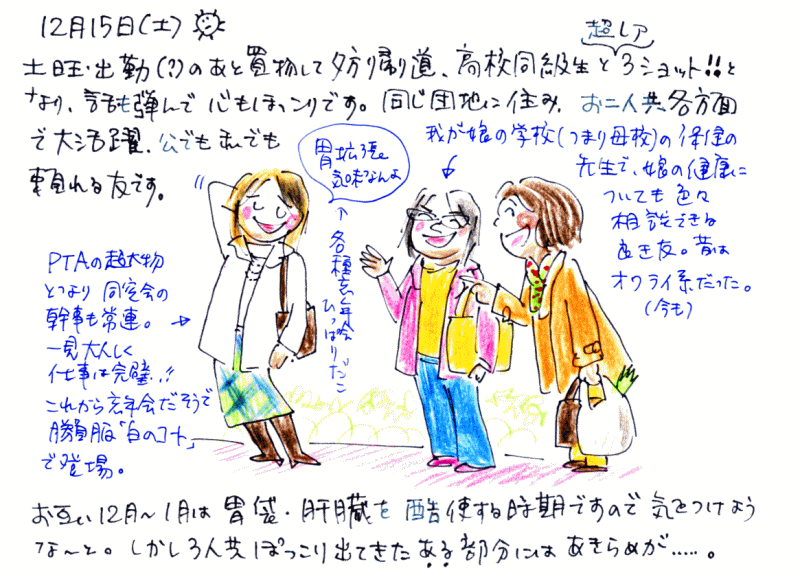 12月15日(土)
超レア
土曜・出勤(?)のあと買物して夕方帰り道、高校同級生と3ショット!!と
なり、話も弾んで心もほっこりです。同じ団地に住み、お二人共各方面
で大活躍、公でも私でも
頼れる友です。
胃拡張
気味なんよ
我が娘の学校(つまり母校)の保健の
先生で、娘の健康に
ついても色々
相談できる
良き友。昔は
オワライ系だった。
(今も)
PTAの超大物
となり同窓会の
幹事も常連。
一見大人しく
仕事は完璧!!
これから忘年会だそうで
勝負服「白のコート」
で登場。
各種忘年会
ひっぱりだこ
お互い12月〜1月は胃袋・肝臓を酷使する時期ですので気をつけよう
な〜と。しかし3人共ぽっこり出てきたある部分にはあきらめが.....。